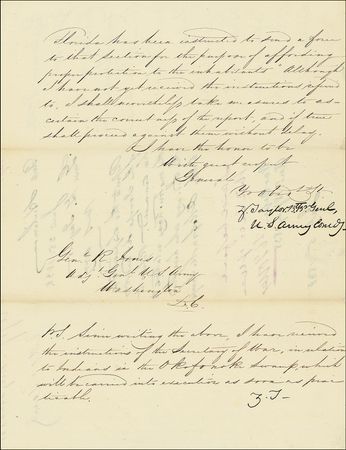 Florida has been instructed to send a force
to that section for the purpose of affording
proper protection to the inhabitants" Although
I have not yet received the instructions referred
to, I shall immediately take measures to as-
certain the correctness of the report, and if true
shall proceed against them without delay.
I have the honor to be
With great respect
General
Yr Obt St
Z. Taylor Bt Br. Genl.
U.S. Army Comdg
Genl. R. Jones
Adjt Genl U.S Army
Washington
D.C.
P.S. Since writing the above, I have received
the instructions of the Secretary of War, in relation
to Indians in the Okefonoke Swamp, which
will be carried into execution as soon as prac
ticable.
Z.T-